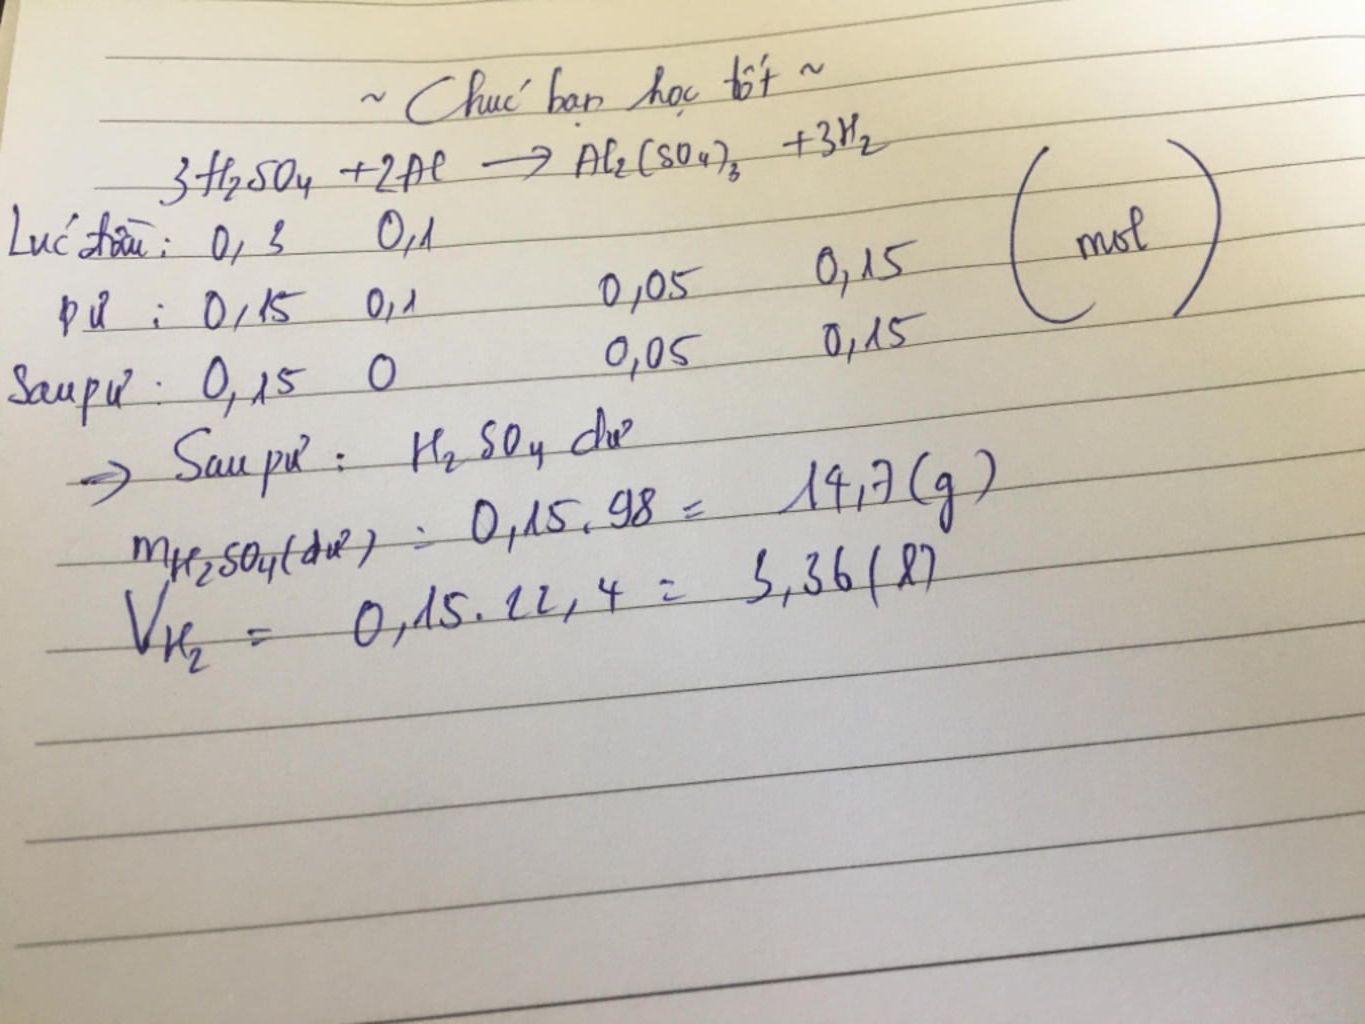 ~ Chúc bạn học tốt ~
3H₂SO₄ + 2Al → Al₂(SO₄)₃ + 3H₂
Lúc đầu: 0,3 0,1
pứ : 0,15 0,1 0,05 0,15 (mol)
Sau pứ : 0,15 0 0,05 0,15
=> Sau pứ : H₂SO₄ dư
mH₂SO₄(dư) = 0,15.98 = 14,7(g)
VH₂ = 0,15.22,4 = 3,36(l)